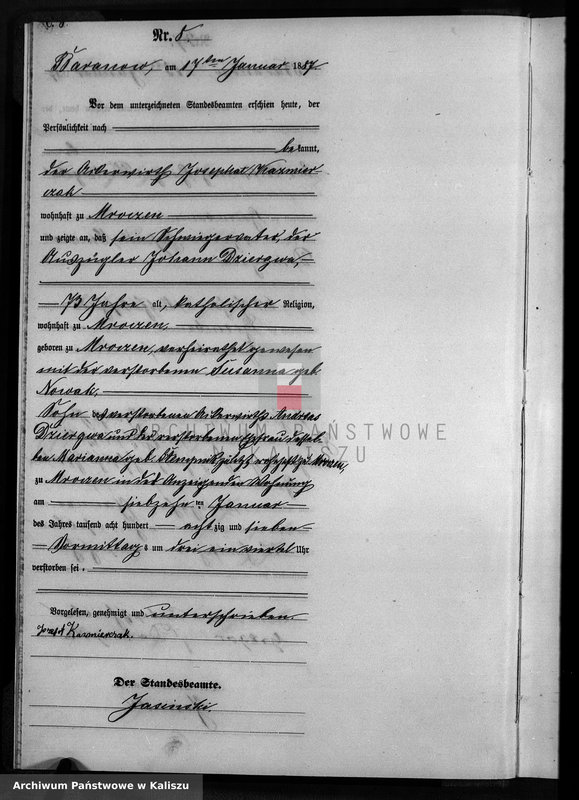 Nr. 8.
Baranow, am 17ten Januar 1887.
Vor dem unterzeichneten Standesbeamten erschien heute, der
Persönlichkeit nach
bekannt,
der Ackerwirth Josephat Kazmier-
czak
wohnhaft zu Mroczen
und zeigte an, daß sein Schwiegervater, der
Auszügler Johann Dziergwa,
73 Jahre alt, katholischer Religion,
wohnhaft zu Mroczen
geboren zu Mroczen, verheirathet gewesen
mit der verstorbenen Susanna geb.
Nowak,
Sohn des verstorbenen Ackerwirths Andreas
Dziergwa und der verstorbenen Ehefrau dessel-
ben Marianna geb. zuletzt wohnhaft zu Mroczen,
zu Mroczen in des Anzeigenden Wohnung
am siebzehnten Januar
des Jahres tausend acht hundert achtzig und sieben
Vormittags um drei ein viertel Uhr
verstorben sei.
Vorgelesen, genehmigt und unterschrieben
Kazmierczak.
Der Standesbeamte.
Jasinski.
ARCHIWUM PAŃSTWOWE
W KALISZU
Archiwum Państwowe w Kaliszu